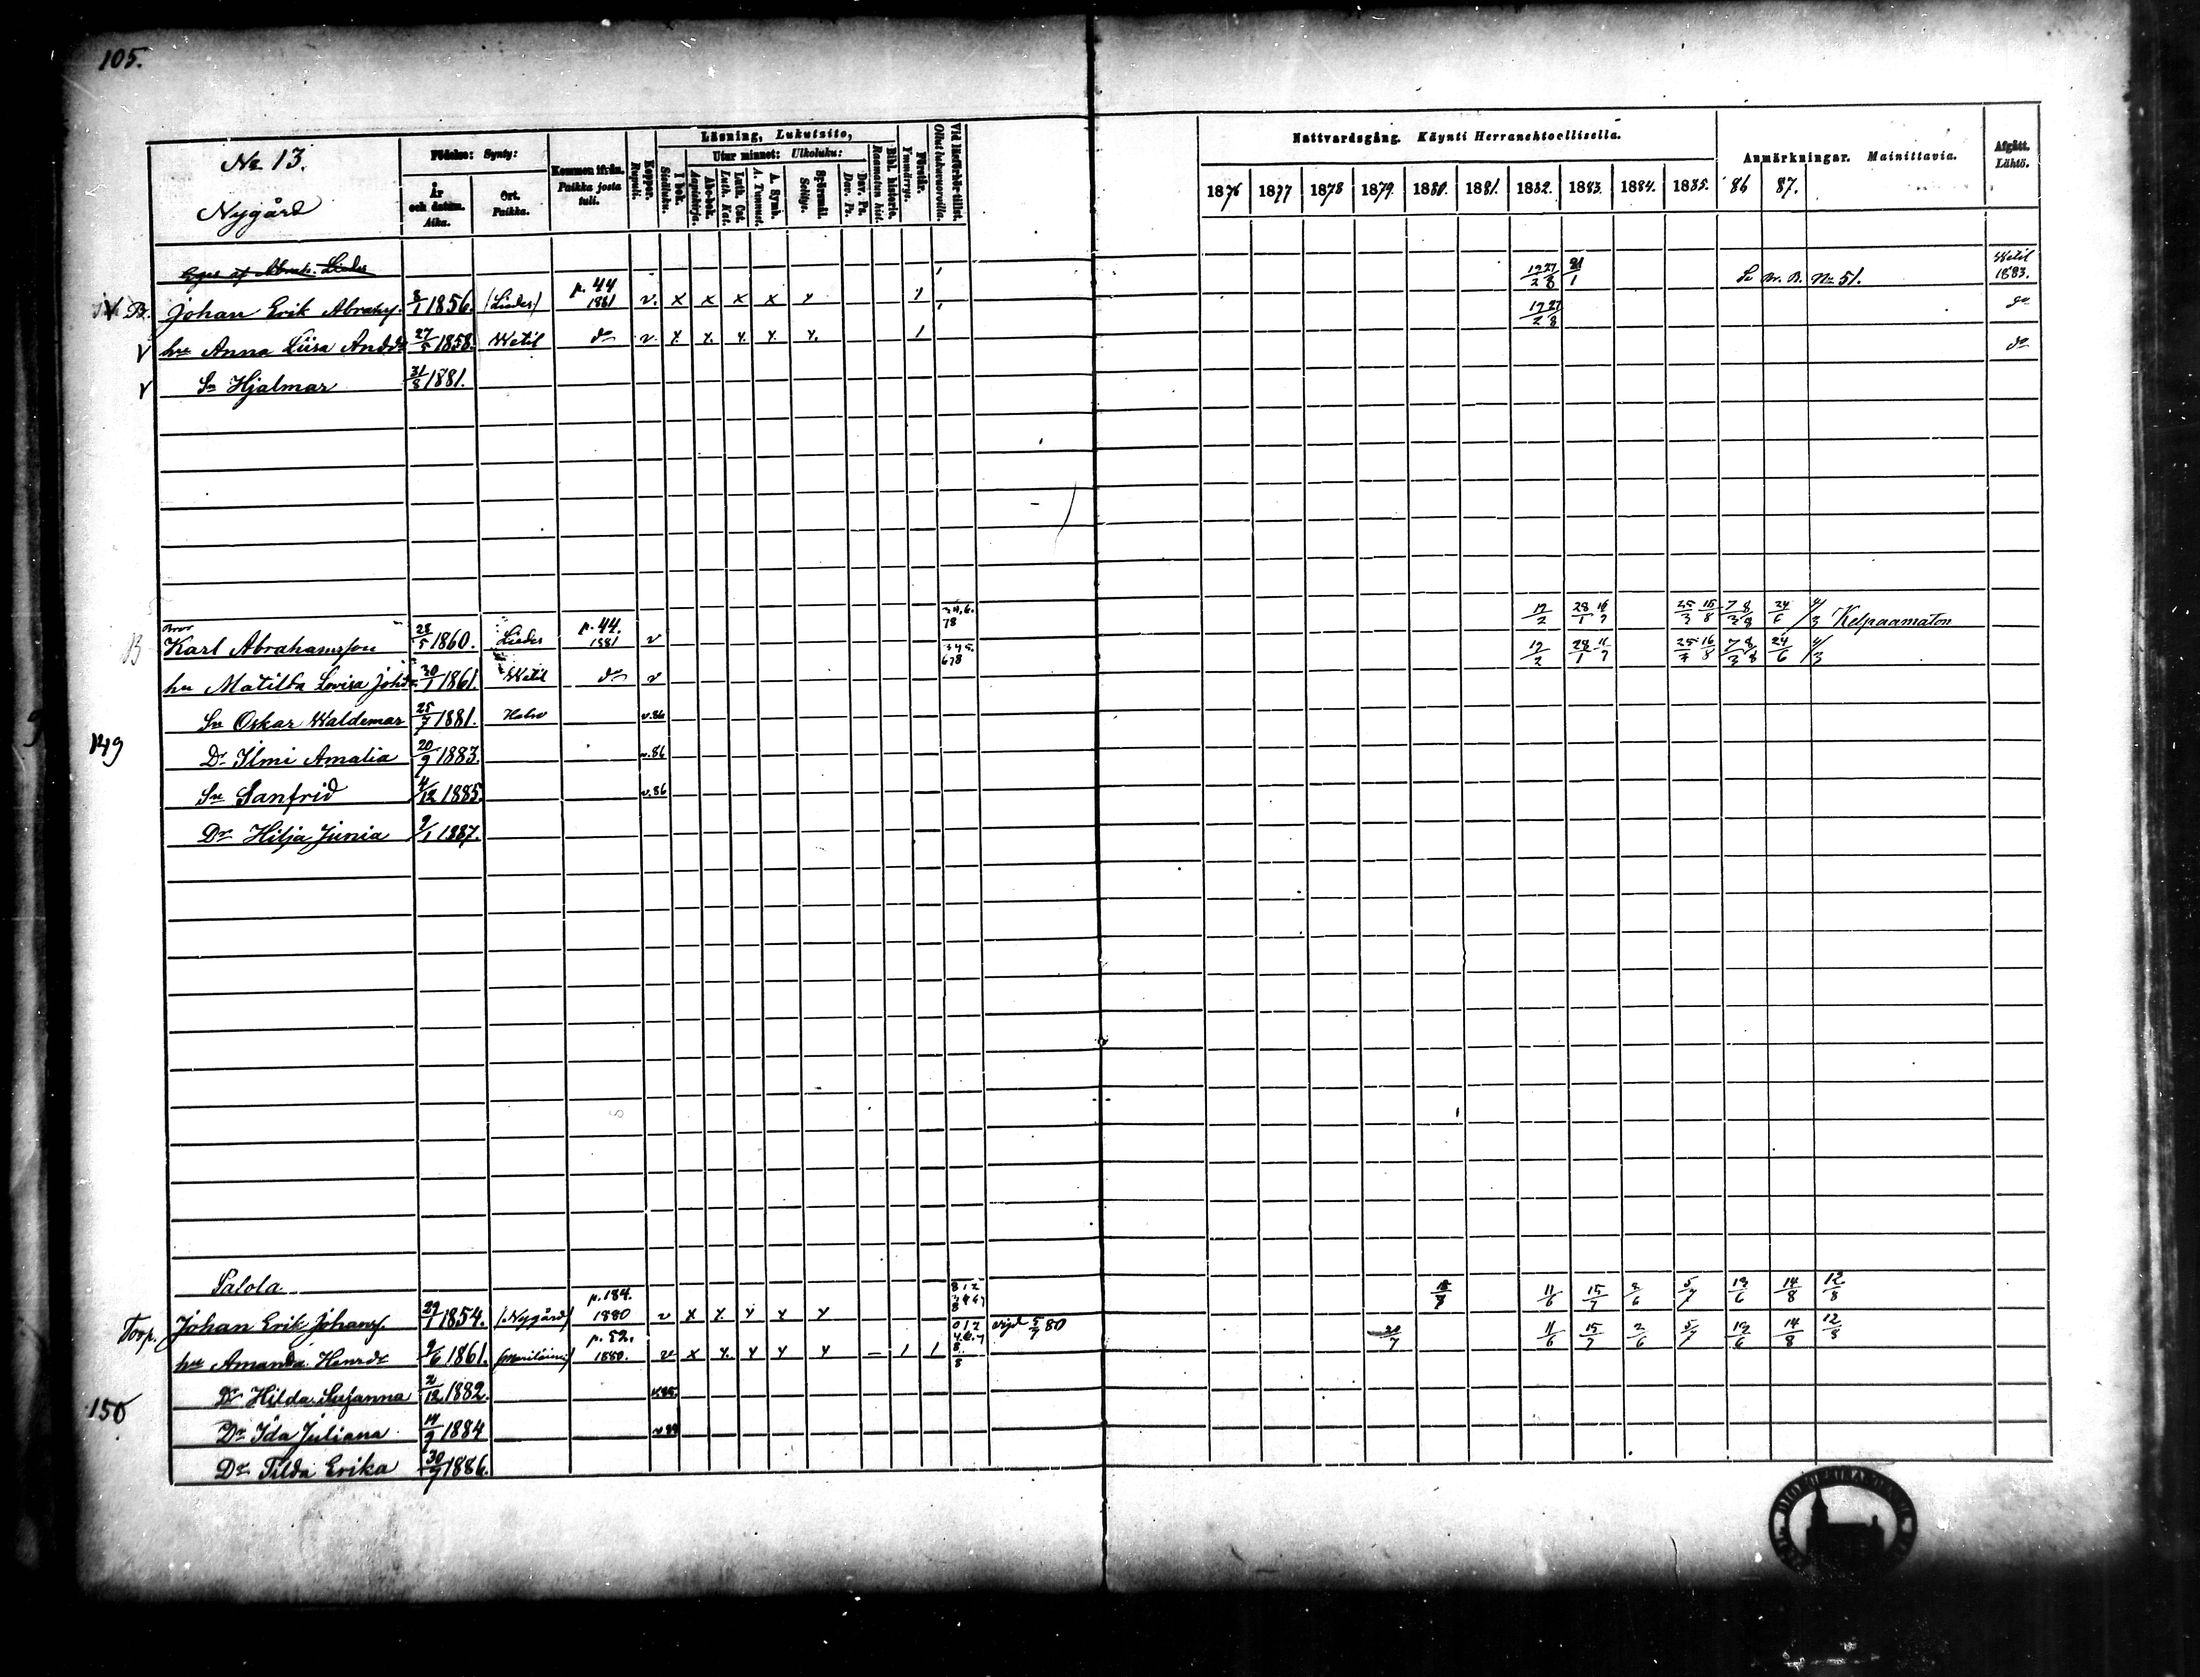 105.
No 13.
Nygård
Födelse: Synty:
År och datum. Aika.
Ort. Paikka.
Kommen ifrån. Paikka josta tuli.
Koppor. Rupuli.
Läsning, Lukutaito,
I bok. Sisäluku.
Utur minnet: Ulkoluku:
Abc-bok. Aapiskirja.
Luth. Cat. Luth. Kat.
A. Symb. A. Tunnust.
Spörsmål. Selitys.
Dav. Ps. Dav. Ps.
Bibl. historia. Raamatun hist.
Förstår. Ymmärrys.
Vid läsförhör tillst. Ollut lukuvuorolla.
Nattvardsgång. Käynti Herranehtoollisella.
1876 1877 1878 1879 1880. 1881. 1882. 1883. 1884. 1885. 86 87.
Anmärkningar. Mainittavia.
Afgått. Lähtö.
Eges af Abrah. Liedes
Johan Erik Abrahs. 8/1 1856. (Liedes) p. 44 1881 v. x x x x x 1 19 27/2 8 21/1 No 51. Wetil 1883.
V hu Anna Liisa Andds 27/5 1858. Wetil do v. x x. x. x. x. 1 19 27/2 8 do
V Sn Hjalmar 31/8 1881. do
Bror
B Karl Abrahamsson 28/5 1860. Liedes p. 44. 1881 v 3 4, 6. 78 19/2 28/1 16/7 25/3 16/8 7/3 8/8 24/6 4/3 Kelpaamaton
hu Matilda Lovisa Johds 30/1 1861. Wetil do v 3 4 5. 678 19/2 28/1 11/7 25/7 16/8 7/3 8/8 24/6 4/3
Sn Oskar Waldemar 25/7 1881. Halso v. 86
149
Dr Ilmi Amalia 20/9 1883. v. 86
Sn Sanfrid 4/12 1885. v. 86
Dr Hilja Junia 9/1 1887.
Palola
Torp. Johan Erik Johans. 29/1 1854. (Nygård) p. 184. 1880 v x x. x x x 11/6 15/7 2/6 5/7 19/6 14/8 12/8
hu Amanda Henrds 9/6 1861. p. 52. 1880. v x x. x x x – 1 1 vigd 5/7 80 20/7 11/6 15/7 2/6 5/7 19/6 14/8 12/8
Dr Hilda Susanna 2/12 1882.
150
Dr Ida Juliana 14/9 1884
Dr Tilda Erika 30/7 1886.